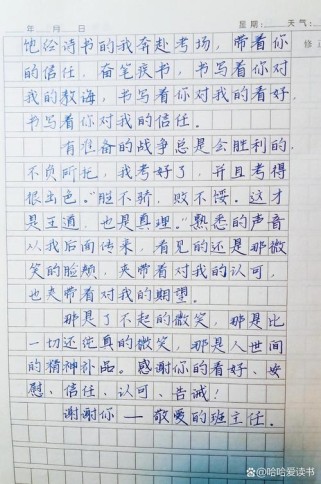 年 月 日 星期: 天气:
饱俭诗书的我奔赴考场,带着你
的信任,奋笔疾书,书写着你对
我的教诲,书写着你对我的看好,
书写着你对我的信任。
有准备的战争总是会胜利的,
不负所托,我考好了,并且考得
很出色。“胜不骄,败不馁。这才
是王道,也是真理。”熟悉的声音
从我后面传来,看见的还是那微
笑的脸颊,夹带着对我的认可,
也夹带着对我的期望。
那是了不起的微笑,那是比
一切还纯真的微笑,那是人世间
的精神补品。感谢你的看好、安
慰、信任、认可、告诫!
谢谢你——敬爱的班主任。
@哈哈爱读书